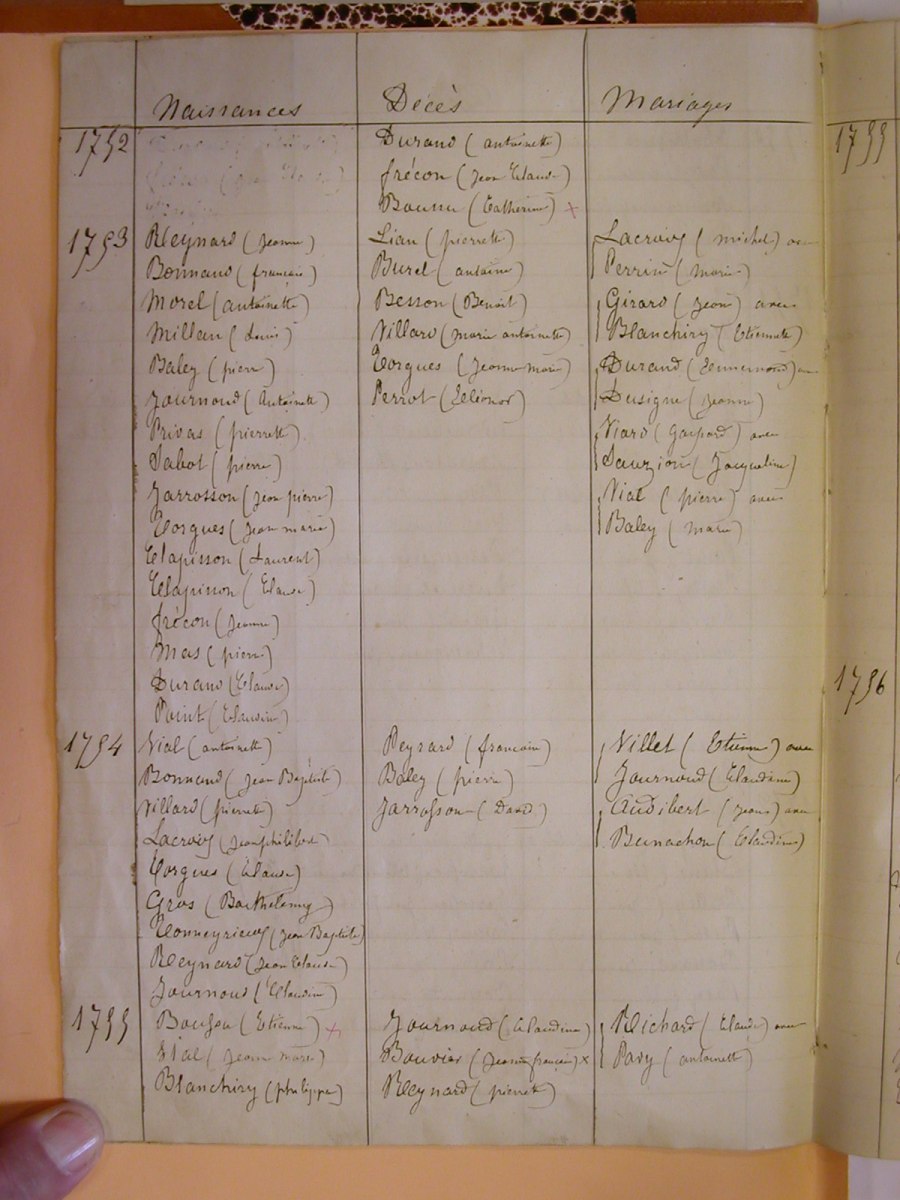 Naissances Décès Mariages
1752 Durand (antoinette) 1755
frécon (Jean Claude)
(Catherine) x
1753 Reynard (Jeanne) Lian (pierrette) Lacroix (michel) avec
Bonnand (francois) Burel (antoine) Perrin (marie)
Morel (antoinette) Besson (Benoit) Girard (Jean) avec
Millan (Denis) Villard (marie antoinette) Blanchiry (Etiennette)
Baley (pierre) Corgues (Jeanne Marie) Durand (Ennemond) avec
Journoud (Antoinette) Perrot (Eléonor) Dusigne (Jeanne)
Privas (pierrette) Viard (Gaspard) avec
Sabot (pierre) Sauzion (Jacqueline)
Jarrosson (Jean pierre) Vial (pierre) avec
Corgues (Jean marie) Baley (marie)
Clapisson (Laurent)
Clapisson (Claude)
frécon (Jeanne)
Mas (pierre)
Durand (Claude) 1756
Point (Claudine)
1754 Vial (antoinette) Peyrard (francois) Villet (Etienne) avec
Bonnand (Jean Baptiste) Baley (pierre) Journoud (Claudine)
Villard (pierrette) Jarrosson (David) Audibert (Jean) avec
Lacroix (Jean philibert) Bunachon (Claudine)
Corgues (Claude)
Gros (Barthélemy)
(Jean Baptiste)
Reynard (Jean Claude)
Journoud (Claudine)
1755 (Etienne) x Journoud (Claudine) Richard (Claude) avec
Vial (Jeanne Marie) Bouvier (Jeanne francoise) x Pavy (antoinette)
Blanchiry (philippe) Reynard (pierrette)